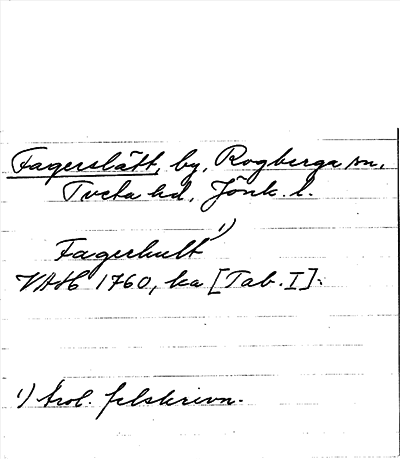 Fagerslätt, by, Rogberga sn,
Tveta hd, Jönk. l.
Fagerhult 1)
VAH 1760, ka [Tab. I].
1) trol. felskrivn.